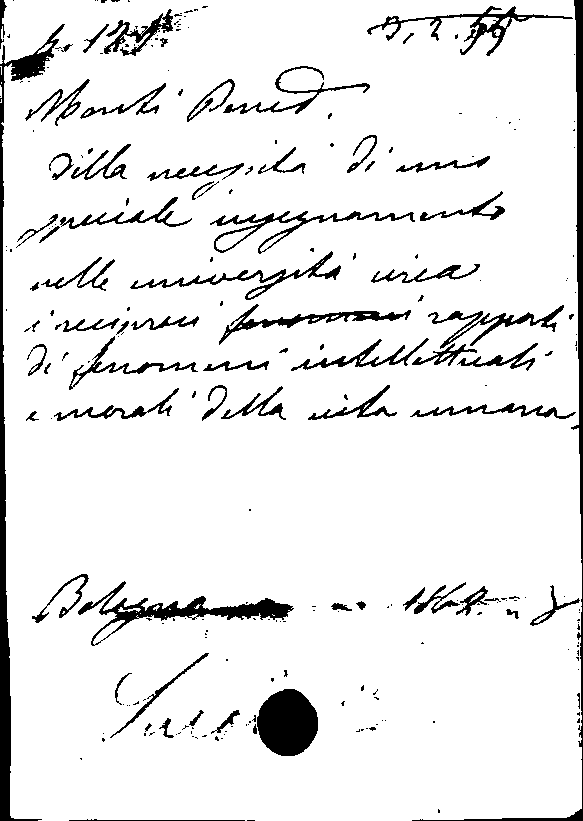 3.2.55
Monti Bened.
Della necessità di uno
speciale insegnamento
nelle università circa
i reciproci fenomeni rapporti
di fenomeni intellettuali
e morali della vita umana.
Bologna 1862. 8